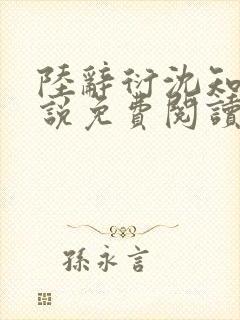 陸辭衍沈知
說免費閱讀
孫永言